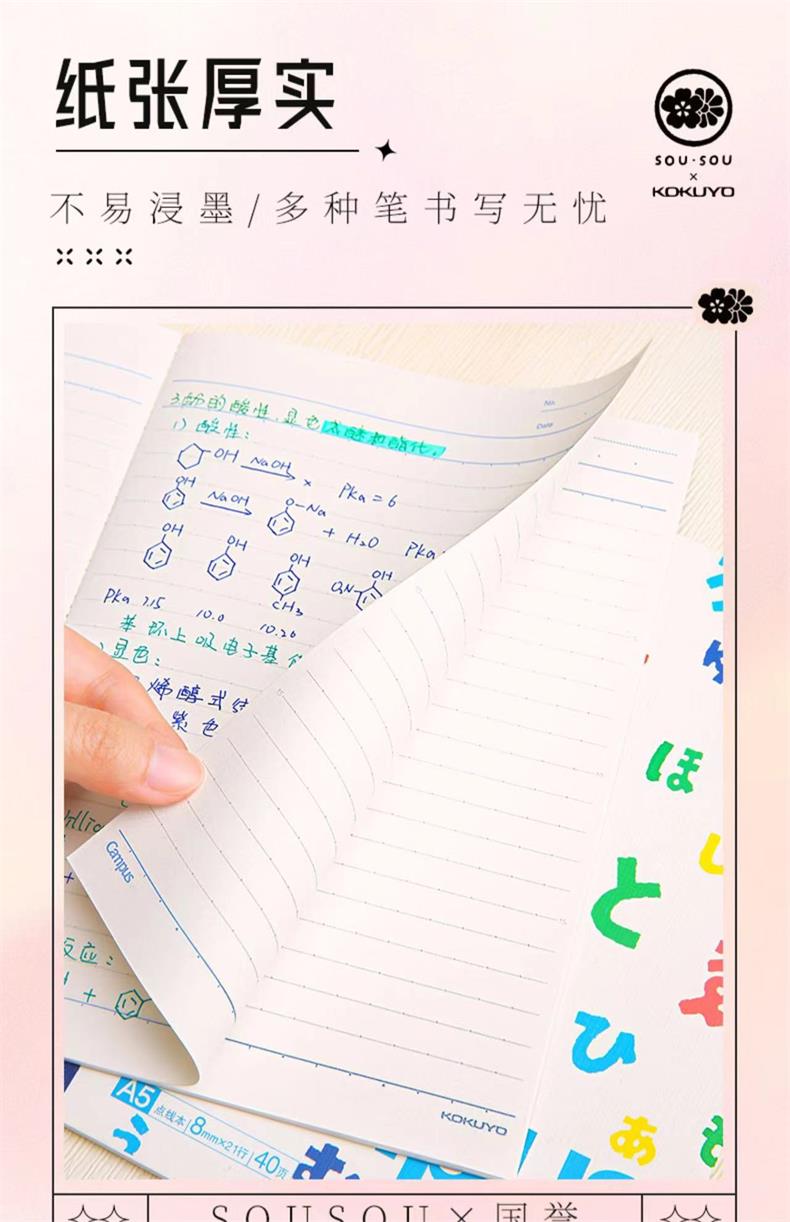 纸张厚实
不易浸墨/多种笔书写无忧
SOU·SOU
×
KOKUYO
No.
Date
3.酚的酸性,显色
1) 酸性:
OH NaOH × Pka = 6
OH NaOH O-Na + H₂O Pka
OH OH OH OH
O₂N
CH₃
Pka 7.15 10.0 10.26
苯环上吸电子基
显色:
烯醇式
紫色
Campus
反应:
+
KOKUYO
A5 点线本 8mm×21行 40页
う
む
ほ
し
と
ひ
あ
SOUSOU×国誉